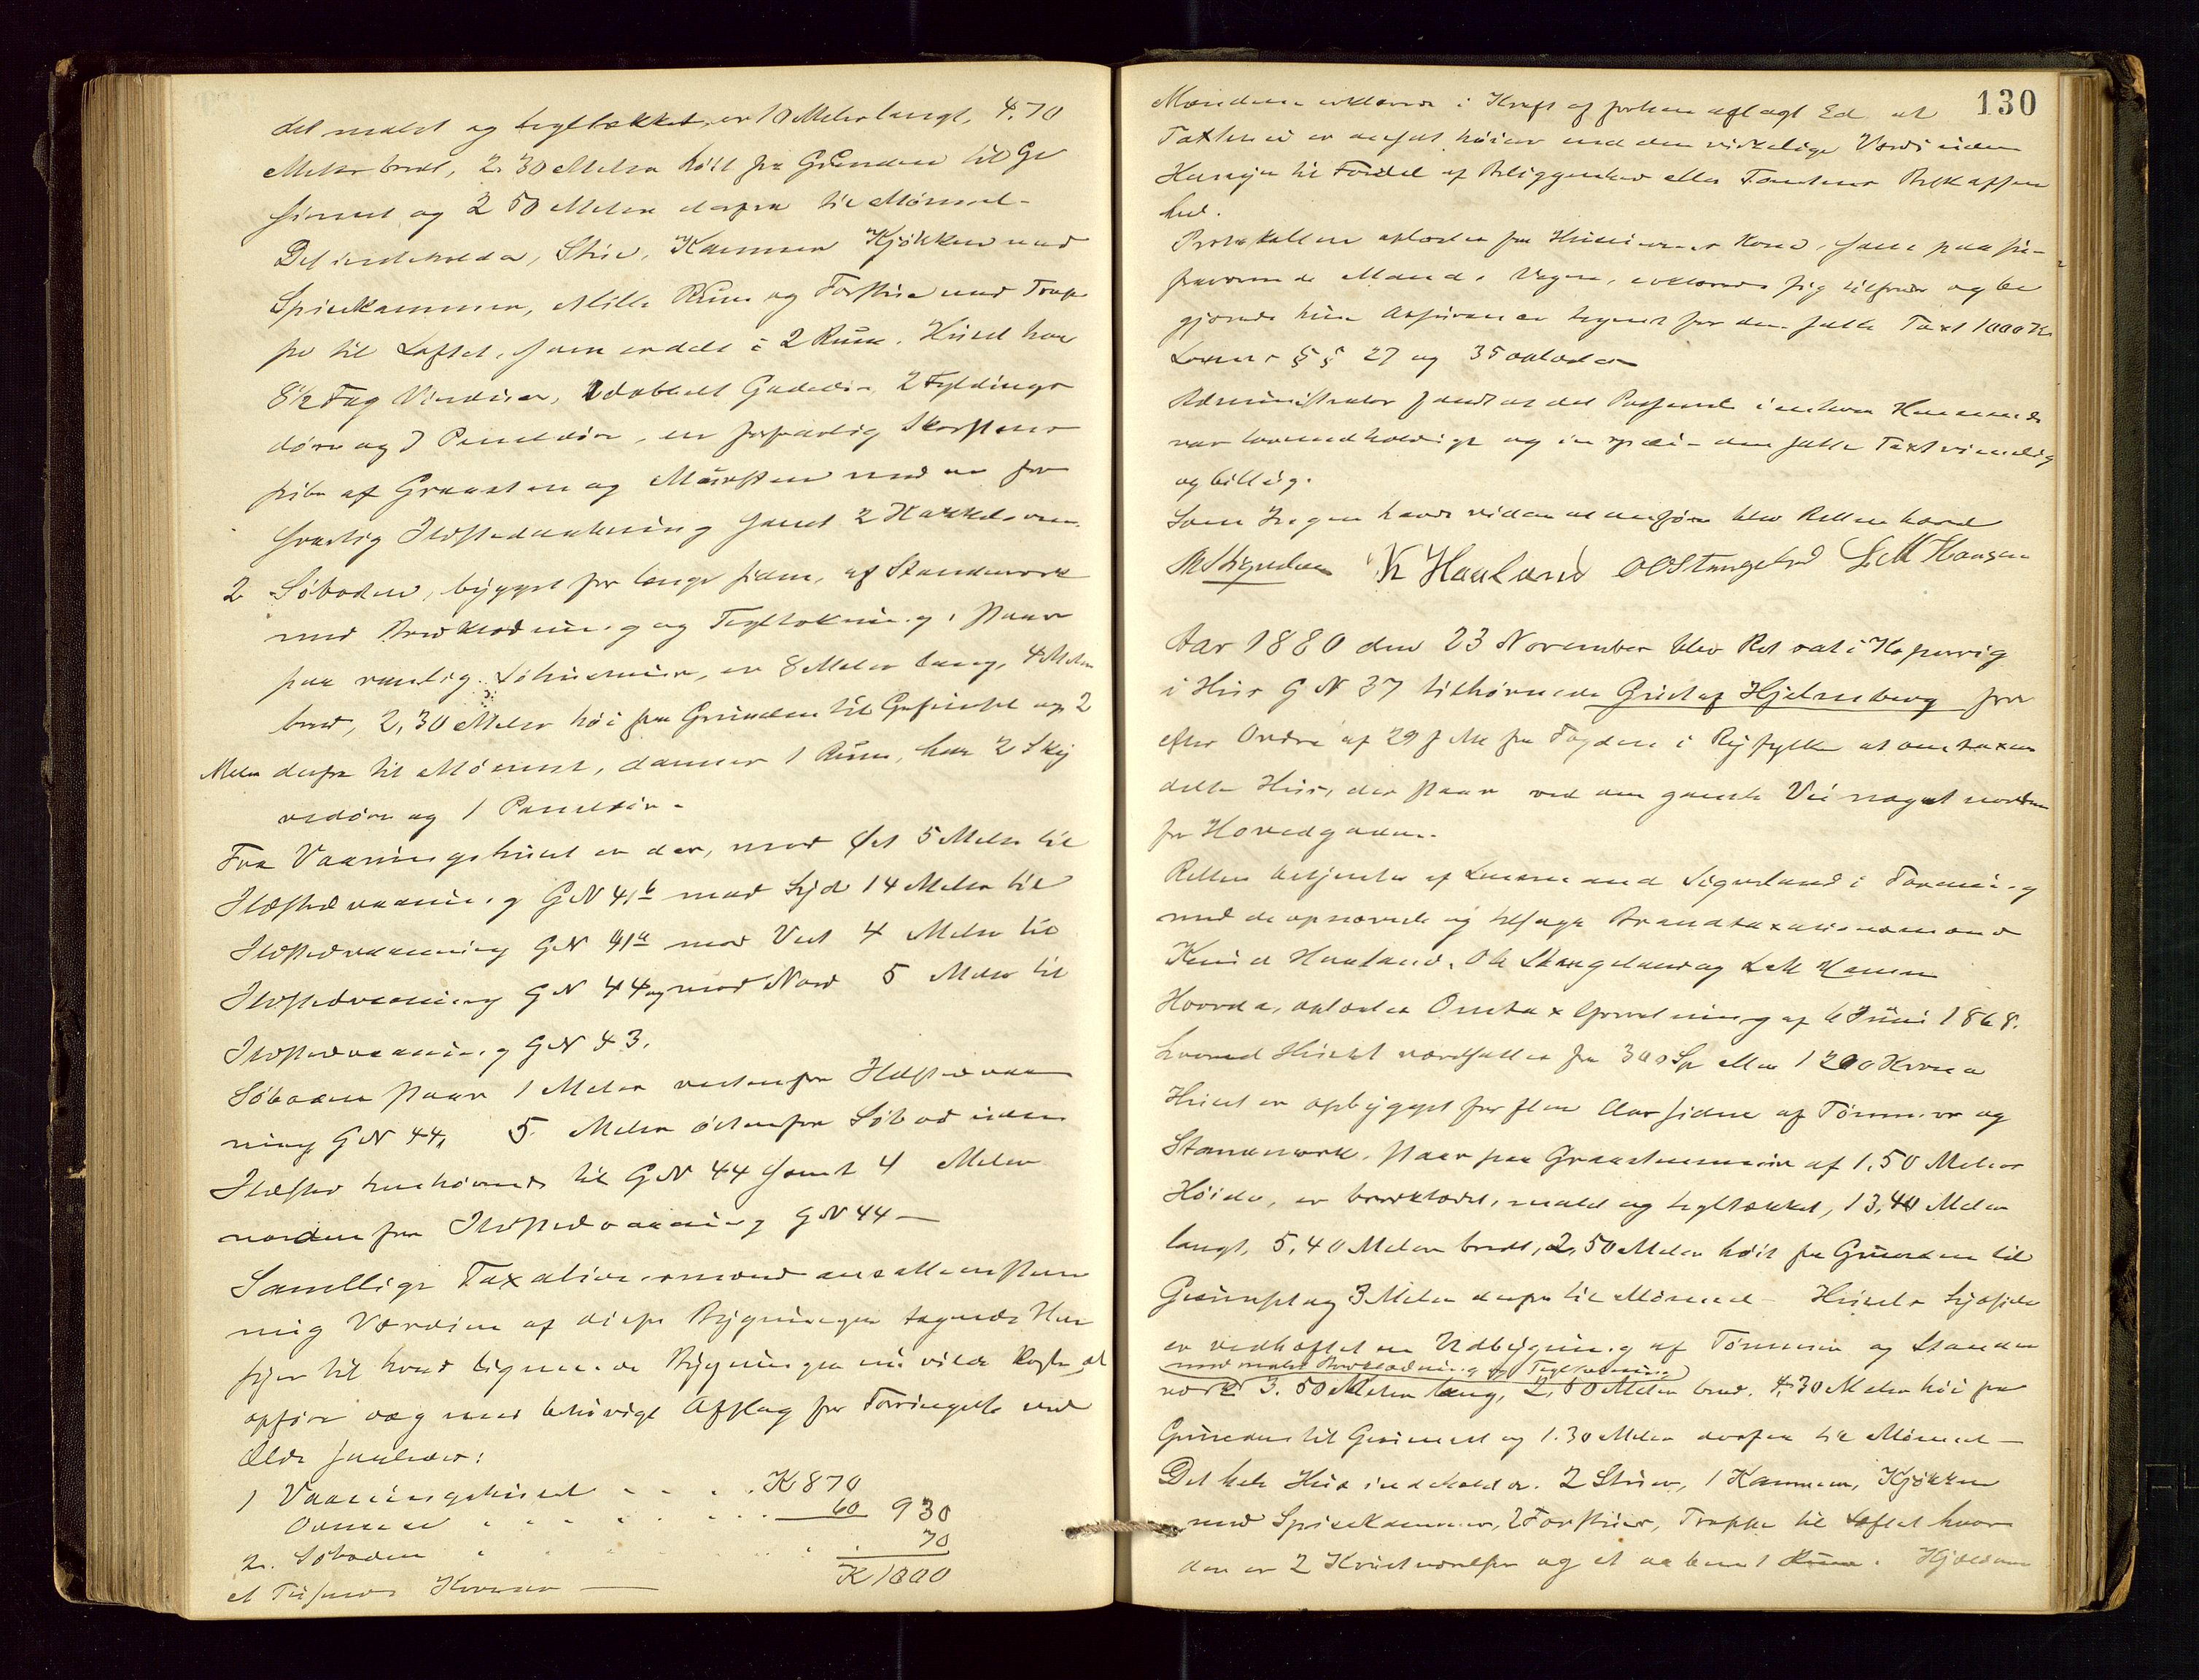 det malet og tegltækket, er 10 Meter langt, 4.70
Meter bredt, 2.30 Meter höit fra Grunden til Ge
simset og 2 50 Meter derfra til Mönnet.
Det indeholder, Stue, Kammer Kjökken med
Spisekammer, Mille Rum og Forstue med Trap
pe til Loftet, som er delt i 2 Rum. Huset har
8½ Fag Vinduer, 1 dobbelt Gadedör, 2 Fyldings
döre og 7 Paneldöre, en forsvarlig Skorstens
pibe af Graasten og Mursten med en for
svarlig Ildstedsindretning samt 2 Kakkelovne.
2 Söboden, bygget for længe siden, af Standværk
med Bordklædning og Tegltækning, staar
paa vanlig Söhusmur, er 8 Meter lang, 4 Meter
bred, 2,30 Meter höi fra Grunden til Gesimset og 2
Meter derfra til Mönnet, danner 1 Rum, har 2 Skyve
vedöre og 1 Paneldör.
Fra Vaaningshuset er der, mod Øst 5 Meter til
Ildstedvaaning GN 41b mod Syd 14 Meter til
Ildstedvaaning GN 41a mod Vest 4 Meter til
Ildstedvaaning GN 44 og mod Nord 5 Meter til
Ildstedvaaning GN 43.
Söboden staar 1 Meter vestenfor Ildstedvaa
ning GN 44, 5. Meter östenfor Söbod uden
Ildsted henhörende til GN 44 samt 4 Meter
nordenfor Ildstedvaaning GN 44 —
Samtlige Taxationsmænd ansatte efter
nig Værdien af disse Bygninger tagende Hen
syn til hvad lignende Bygninger nu vilde koste at
opföre og med behörigt Afslag for Foringelse ved
Ælde saaledes:
1 Vaaningshuset . . . . K 870
Ovnene . . . . . . . . 60 930
2. Söboden . . . . . . . . 70
et Tusinde Kroner — K 1000
130
Mændene erklærede i Kraft af forhen aflagt Ed at
Taxten ei er ansat höiere end den virkelige Værdi uden
Hensyn til Fordel af Beliggenhed eller Tomtens Beskaffen
hed.
Protokollen oplæstes for Huseierens Kone, som paa sin
fraværende Mands Vegne, erklærede sig tilfreds og be
gjærede hun Assurancen tegnet for den satte Taxt 1000 Kr
Lovens §§ 27 og 35 oplæstes
Administrator fandt at det Passerede i enhver Henseende
var lovmedholdigt og i en spæi den satte Taxt rimelig
og billig.
Som Ingen havde videre at anföre blev Retten hævet
K Haaland OO Stangeland L M Hansen
Aar 1880 den 23 November blev Ret sat i Kopervig
i Hus GN 37 tilhörende Gustaf Hjelmberg for
efter Ordre af 29 f M fra Fogden i Ryfylke at omtaxere
dette Hus, der staar ved den gamle Vei noget norden
for Hovedgaden.
Retten betjentes af Lensmand Sigveland i Forening
med de opnævnte og tilsagte Brandtaxationsmænd
Knud Haaland, Ole Stangeland og L M Hansen
Hvorda, oplæstes Omtaxtforretning af 6 Juni 1868.
hvorved Huset værdsattes for 300 Sp eller 1200 Kroner
Huset er opbygget for flere Aar siden af Tömmer og
Standværk, staar paa Graastensmur af 1.50 Meter
Höide, er bordklædt, malet og tegltækket, 13,40 Meter
langt, 5,40 Meter bredt, 2,50 Meter höit fra Grunden til
Gesimset og 3 Meter derfra til Mönnet – Husets Sydside
er vedhæftet en Udbygning af Tömmer og Stander
med malet Bordklædning og Tegltækning
værk 3.50 Meter lang, 2,60 Meter bred, 4,30 Meter höi fra
Grunden til Gesimset og 1.30 Meter derfra til Mönnet –
Det hele Hus indeholder 2 Stuer, 1 Kammer, Kjökken
med Spisekammer, 2 Forstuer, Trappe til Loftet hvor
der er 2 Kvistværelser og et aabent Rum. Kjælderen